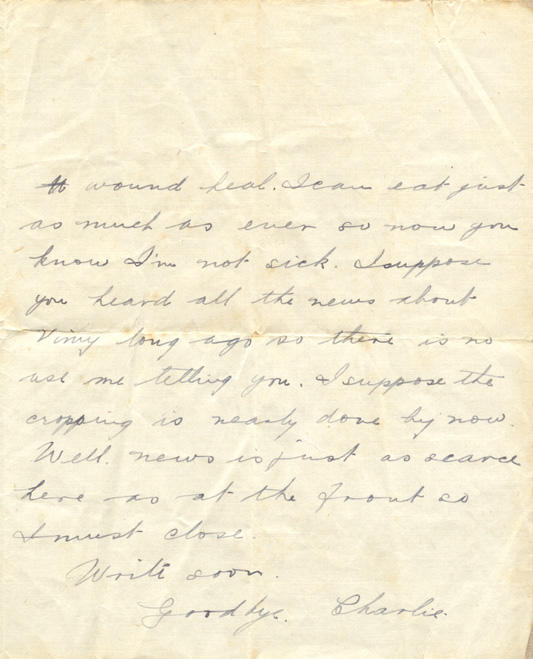 wound heal. I can eat just
as much as ever so now you
know I'm not sick. I suppose
you heard all the news about
Vimy long ago so there is no
use me telling you. I suppose the
cropping is nearly done by now.
Well. news is just as scarce
here as at the front so
I must close.
Write soon.
Goodbye. Charlie.